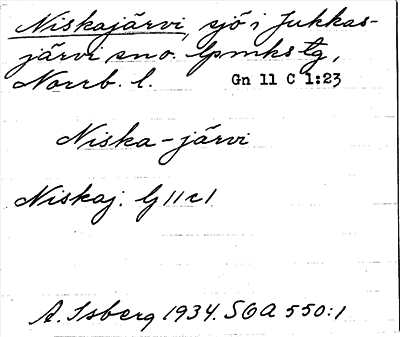 Niskajärvi, sjö i Jukkas-
järvi sno. lpmks tg,
Norrb. l. Gn 11 C 1:23
Niska-järvi
Niskaj. G 11 c 1
A. Isberg 1934. SOA 550:1